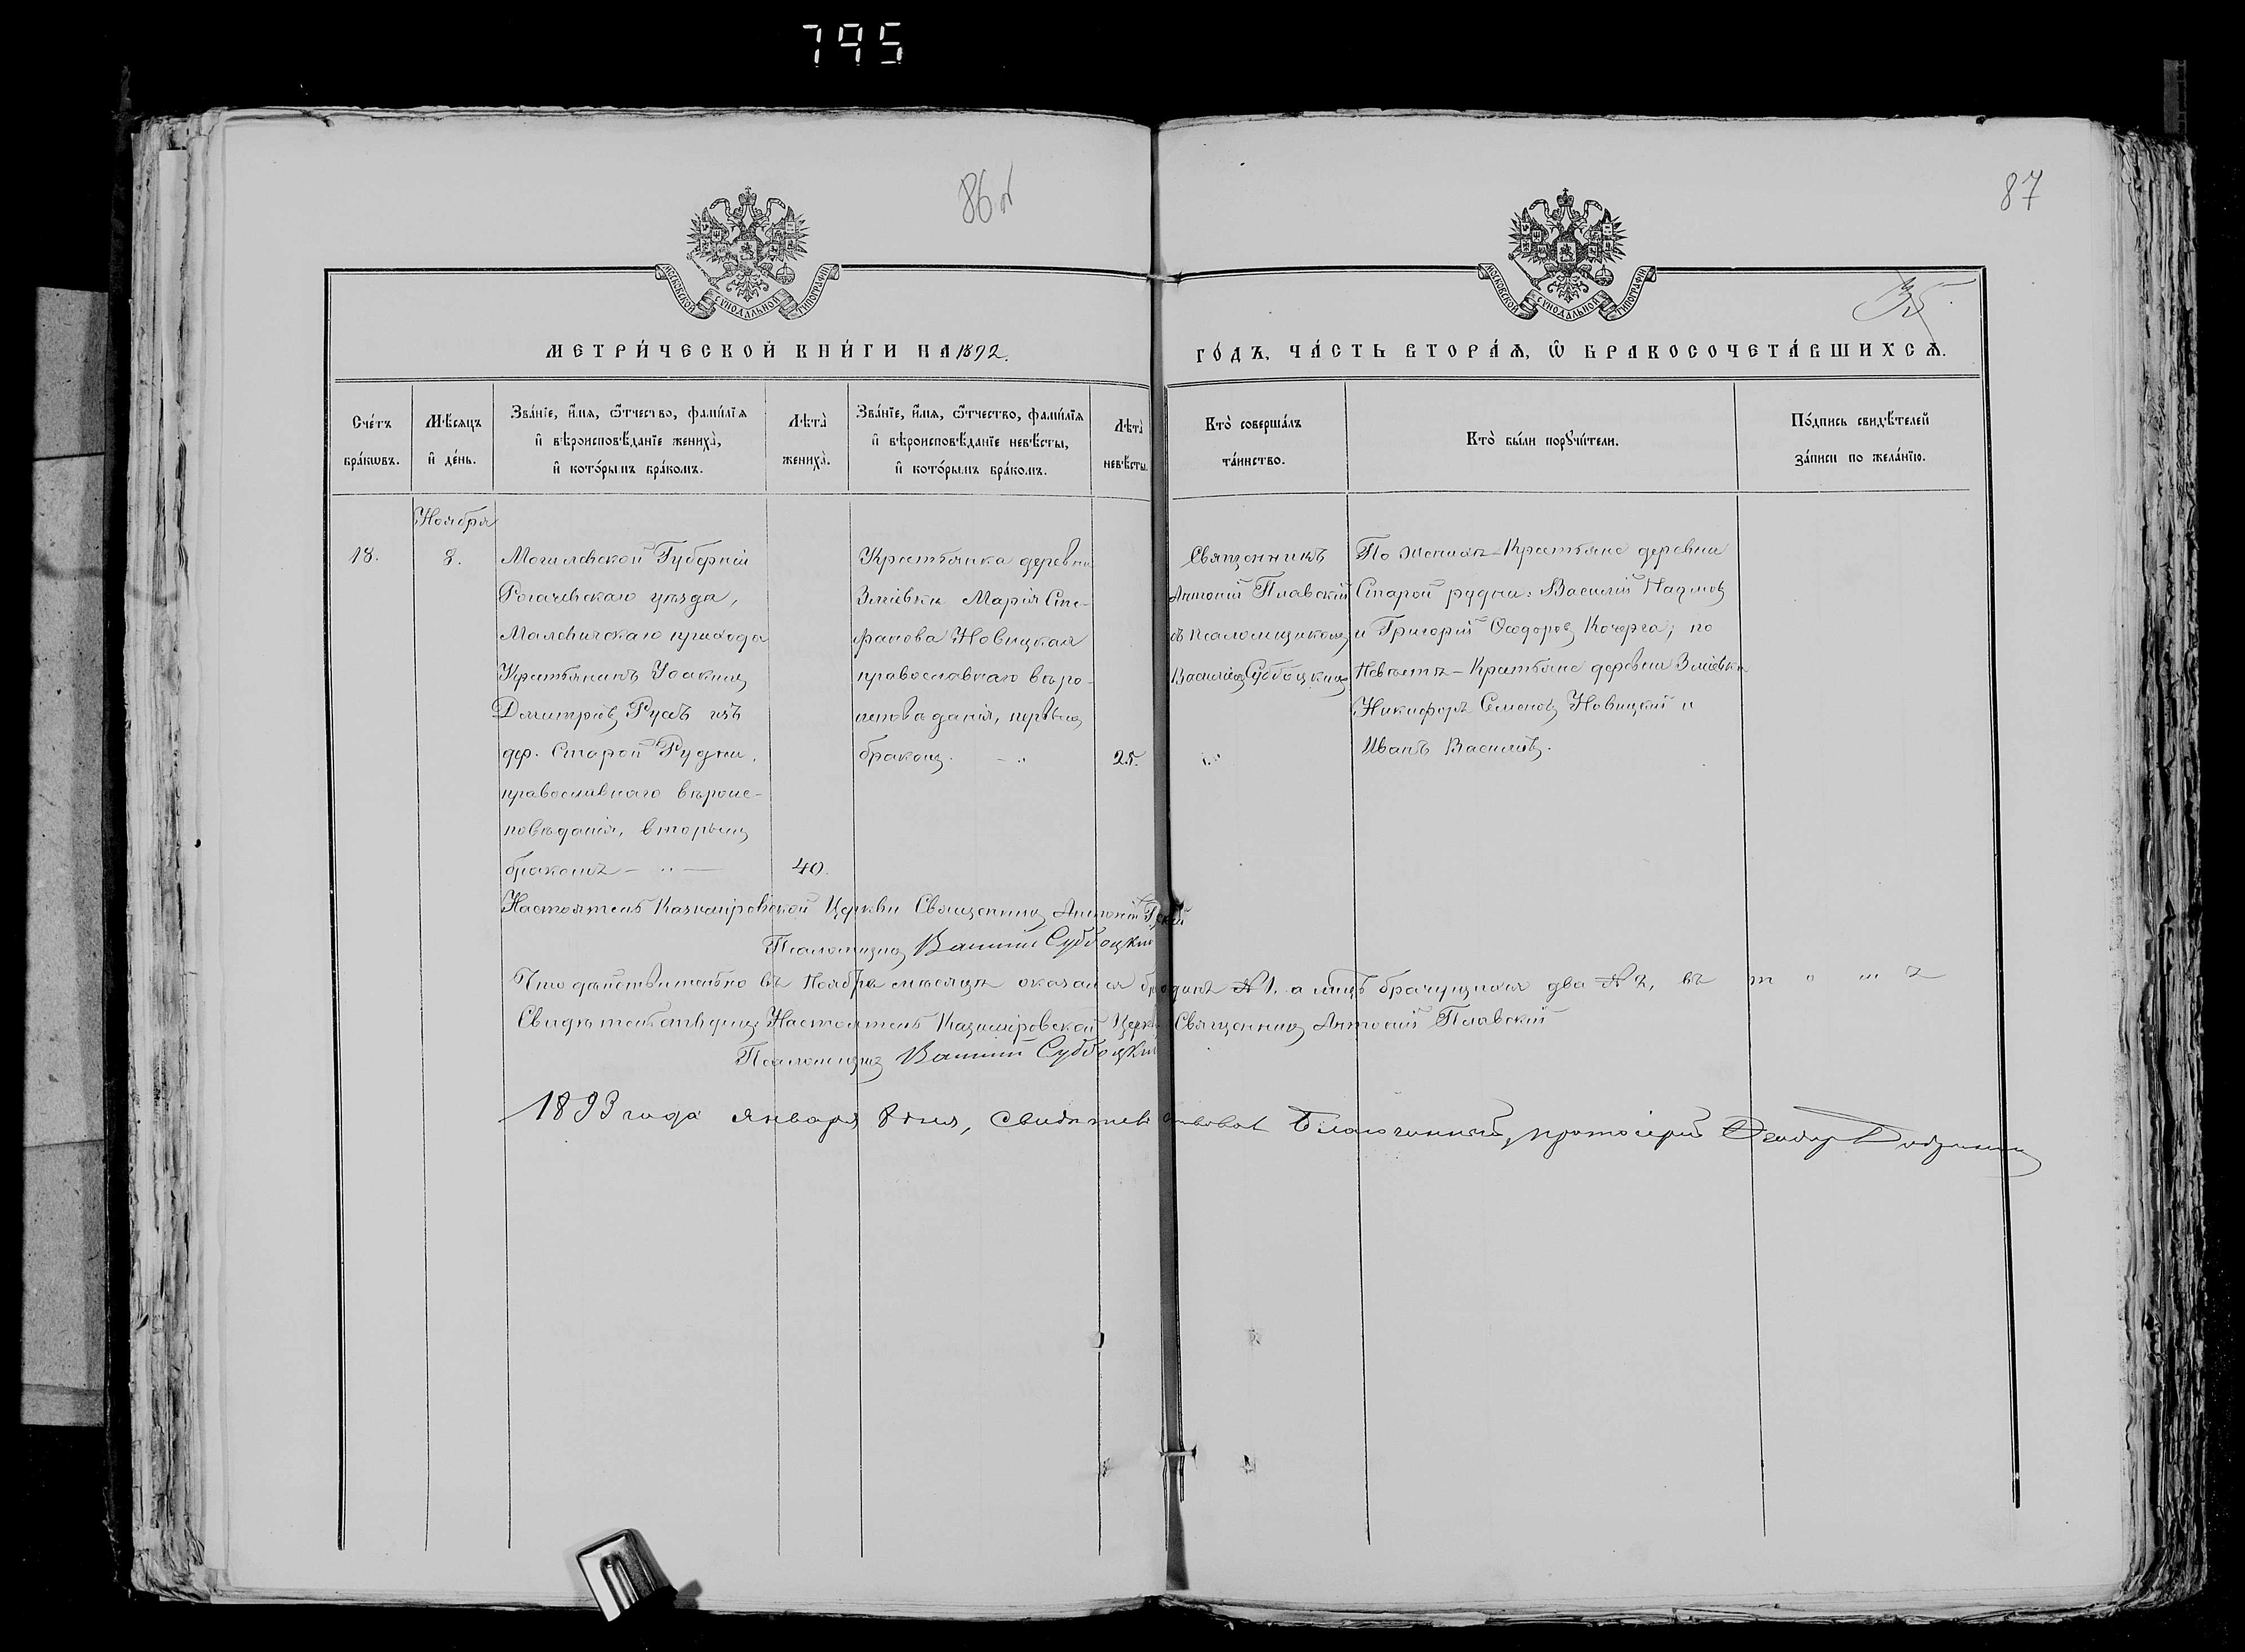 795
86об
87
35.
МОСКОВСКОЙ СѴНОДАЛЬНОЙ ТИПОГРАФІИ
МОСКОВСКОЙ СѴНОДАЛЬНОЙ ТИПОГРАФІИ
МЕТРИ́ЧЕСКОЙ КНИ́ГИ НА 1892.
ГО́ДЪ, ЧА́СТЬ ВТОРА́Ѧ, Ѽ БРАКОСОЧЕТА́ВШИХСѦ.
Сче́тъ
бра́кѡвъ.
Мѣ́сяцъ
и҆ де́нь.
Зва́нїе, и҆́мѧ, ѻ҆́тчество, фамї́лїѧ
и҆ вѣроисповѣ́данїе жениха̀,
и҆ кото́рымъ бра́комъ.
Лѣта̀
жениха̀.
Зва́нїе, и҆́мѧ, ѻ҆́тчество, фамї́лїѧ
и҆ вѣроисповѣ́данїе невѣ́сты,
и҆ кото́рымъ бра́комъ.
Лѣта̀
невѣ́сты.
Кто̀ соверша́лъ
та́инство.
Кто̀ бы́ли порꙋчи́тели.
По́дпись свидѣ́телей
за́писи по жела́нїю.
Ноября
18.
8.
Могилевской Губерніи
Рогачевскаго уѣзда,
Маловичскаго прихода
Крестьянинъ Іоакимъ
Димитріевъ Русъ изъ
дер. Старой Рудни,
православнаго вѣроис-
повѣданія, вторымъ
бракомъ
40.
Крестьянка деревни
Зміовки Марія Сте-
фанова Новицкая
православнаго вѣро-
исповѣданія, первымъ
бракомъ.
25.
Священникъ
Антоній Плавскій
съ псаломщикомъ
Василіемъ Субботскимъ
По женихѣ – Крестьяне деревни
Старой рудни: Василій Наумовъ
и Григорій Ѳеодоровъ Кочерга; по
Невѣстѣ – Крестьяне деревни Зміовки
Никифоръ Семеновъ Новицкій и
Иванъ Васильевъ.
Настоятель Казиміровской Церкви Священникъ Антоній
Псаломщикъ Василій Субботскій
Что дѣйствительно въ Ноябрѣ мѣсяцѣ оказался одинъ № 1, а лицъ брачущихся два № 2, въ т
Свидѣтельствуемъ Настоятель Казиміровской Церкви Священникъ Антоній Плавскій
Псаломщикъ Василій Субботскій
1893 года января 8 дня, свидѣтельствовалъ Благочинный, протоіерей